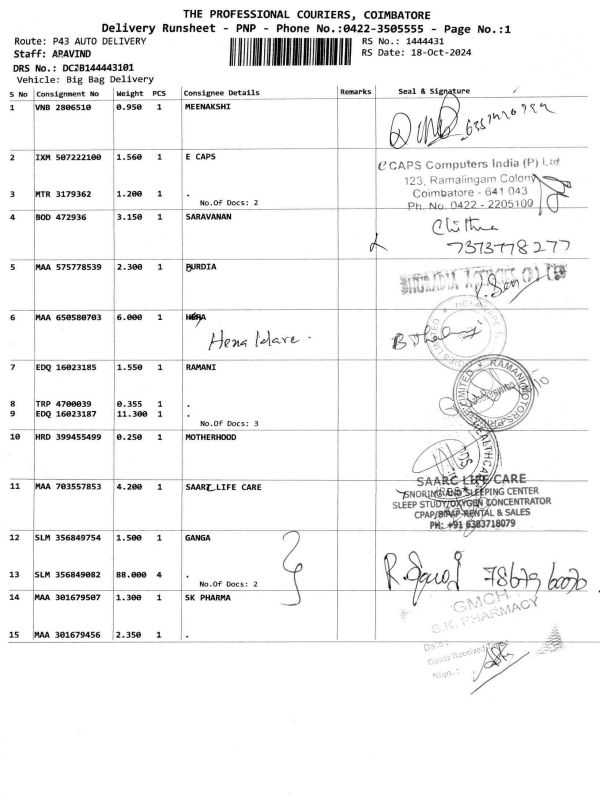 THE PROFESSIONAL COURIERS, COIMBATORE
Delivery Runsheet - PNP - Phone No.:0422-3505555 - Page No.:1
Route: P43 AUTO DELIVERY
RS No.: 1444431
Staff: ARAVIND
RS Date: 18-Oct-2024
DRS No.: DCJB144443101
Vehicle: Big Bag Delivery
S No Consignment No Weight PCS Consignee Details Remarks Seal & Signature
1 VNB 2806510 0.950 1 MEENAKSHI
2 IXM 507222100 1.560 1 E CAPS
eCAPS Computers India (P) Ltd
123, Ramalingam Colony
3 MTR 3179362 1.200 1 .
Coimbatore - 641 043
No.Of Docs: 2
Ph. No. 0422 - 2205100
4 BOD 472936 3.150 1 SARAVANAN
Chithra
7373778277
5 MAA 575778539 2.300 1 BURDIA
6 MAA 650580703 6.000 1 HERA
7 EDQ 16023185 1.550 1 RAMANI
RAMANI MOTORS PRIVATE LIMITED
8 TRP 4700039 0.355 1 .
9 EDQ 16023187 11.300 1 .
No.Of Docs: 3
10 HRD 399455499 0.250 1 MOTHERHOOD
HEALTHCARE
11 MAA 703557853 4.200 1 SAARC LIFE CARE
SAARC LIFE CARE
SNORING AND SLEEPING CENTER
SLEEP STUDY/OXYGEN CONCENTRATOR
CPAP/BIPAP RENTAL & SALES
PH: +91 6383718079
12 SLM 356849754 1.500 1 GANGA
13 SLM 356849082 88.000 4 .
No.Of Docs: 2
14 MAA 301679507 1.300 1 SK PHARMA
GMCH
S.K. PHARMACY
15 MAA 301679456 2.350 1 .
Date :
Goods Received
Sign. :